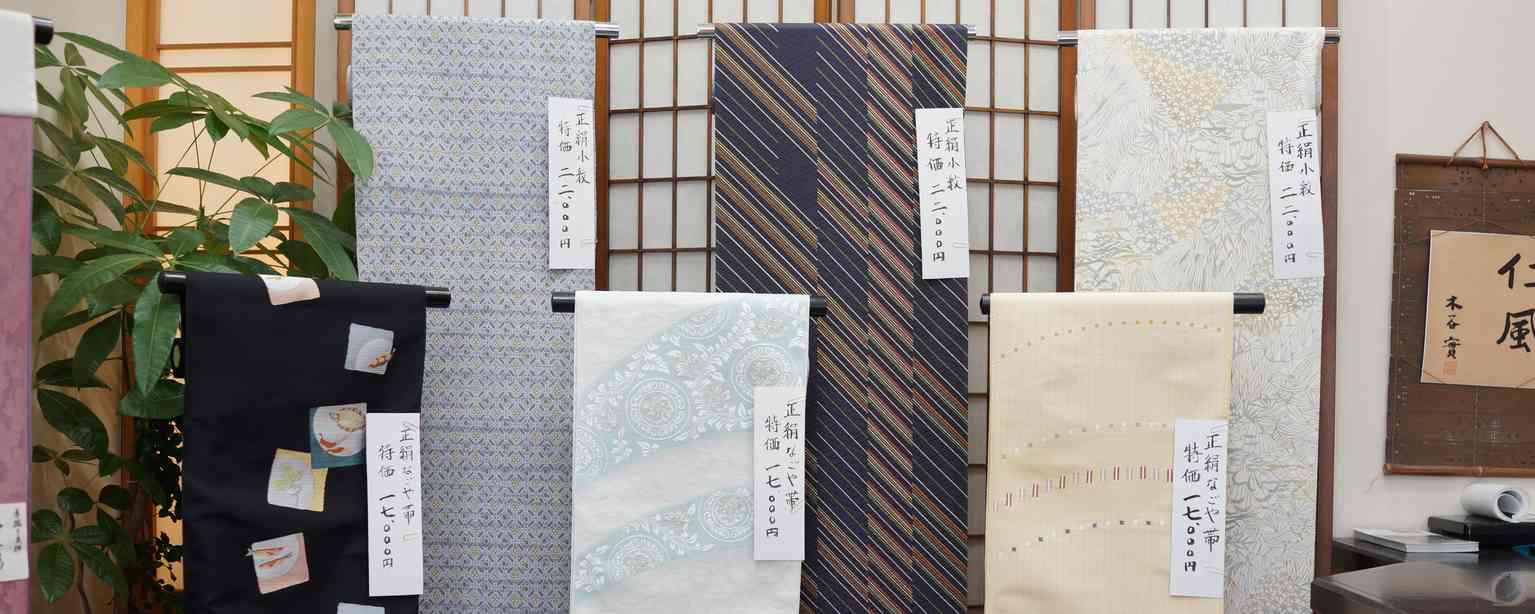 正絹小紋
特価 二二、〇〇〇円
正絹小紋
特価 二二、〇〇〇円
正絹小紋
特価 二二、〇〇〇円
正絹なごや帯
特価 一七、〇〇〇円
正絹なごや帯
特価 一七、〇〇〇円
正絹なごや帯
特価 一七、〇〇〇円
仁風
木谷實